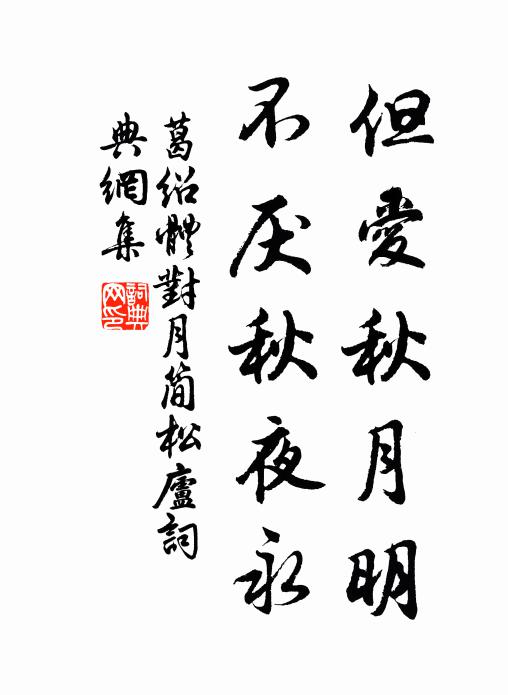 但愛秋月明
不厌秋夜永
葛绍體對月简松廬詞
典網集
詞典
网印